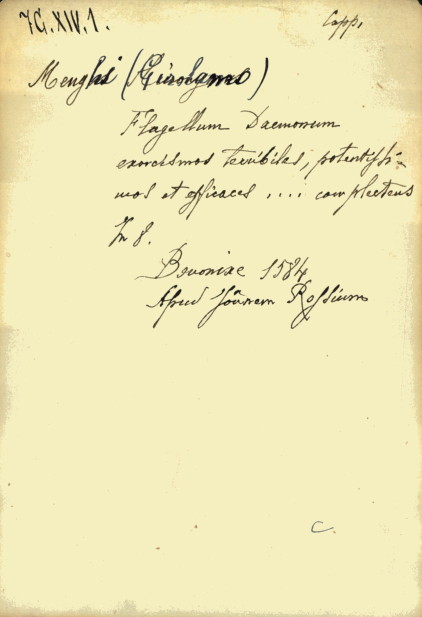 7G.XIV.1.
Capp.
Menghi (Girolamo)
Flagellum Daemonum
exorcismos terribiles, potentissi-
mos et efficaces .... complectens
In 8.
Bononiae 1584
Apud Joannem Rossium
C.